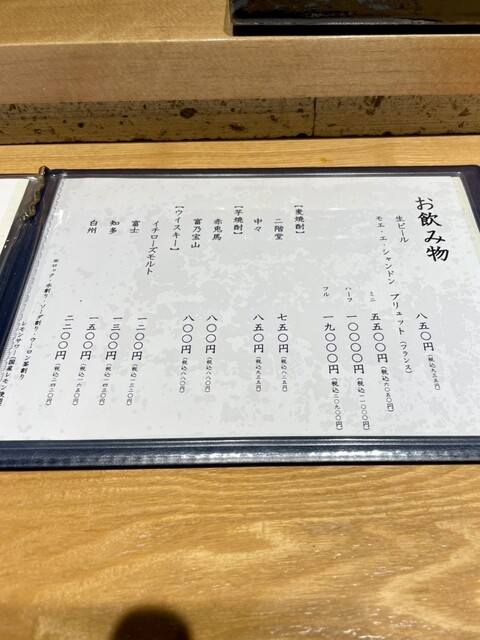 お飲み物
生ビール 八五〇円(税込九三五円)
モエ・エ・シャンドン ブリュット(フランス)
ミニ 五五〇〇円(税込六〇五〇円)
ハーフ 一〇〇〇〇円(税込一一〇〇〇円)
フル 一九〇〇〇円(税込二〇九〇〇円)
【麦焼酎】
二階堂 七五〇円(税込八二五円)
中々 八五〇円(税込九三五円)
【芋焼酎】
赤兎馬 八〇〇円(税込八八〇円)
富乃宝山 八〇〇円(税込八八〇円)
【ウイスキー】
イチローズモルト 一二〇〇円(税込一三二〇円)
富士 一三〇〇円(税込一四三〇円)
知多 一五〇〇円(税込一六五〇円)
白州 二二〇〇円(税込二四二〇円)
※ロック・水割り・ソーダ割り・ウーロン茶割り
レモンサワー国産レモン使用